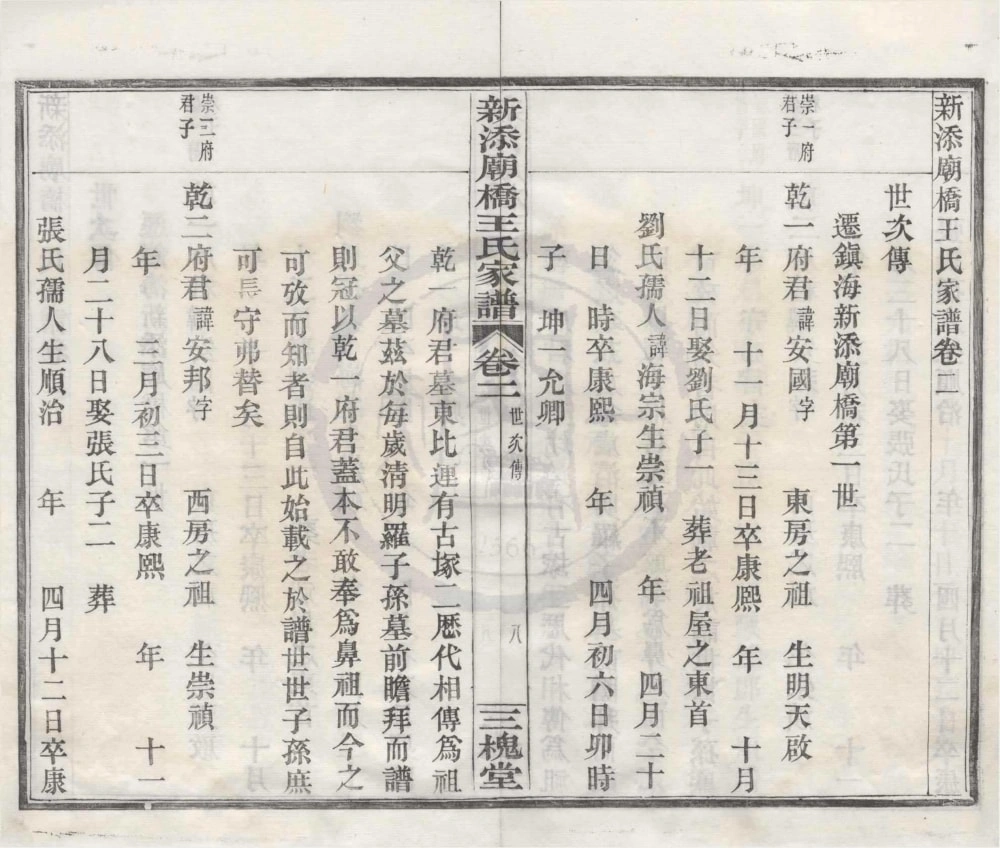 新添廟橋王氏家譜卷二
世次傳
遷鎮海新添廟橋第一世
崇一府君子
乾一府君諱安國字 東房之祖 生明天啟
年 十一月十三日卒康熙 年 十月
十二日娶劉氏子一 葬老祖屋之東首
劉氏孺人諱海宗生崇禎 年 四月二十
日 時卒康熙 年 四月初六日卯時
子 坤一允卿
新添廟橋王氏家譜 卷二 世次傳 八 三槐堂
乾一府君墓東比連有古塚二歷代相傳為祖
父之墓茲於每歲清明羅子孫墓前瞻拜而譜
則冠以乾一府君蓋本不敢奉為鼻祖而今之
可攷而知者則自此始載之於譜世世子孫庶
可 守弗替矣
崇二府君子
乾二府君諱安邦字 西房之祖 生崇禎
年 三月初三日卒康熙 年 十一
月二十八日娶張氏子二 葬
張氏孺人生順治 年 四月十二日卒康